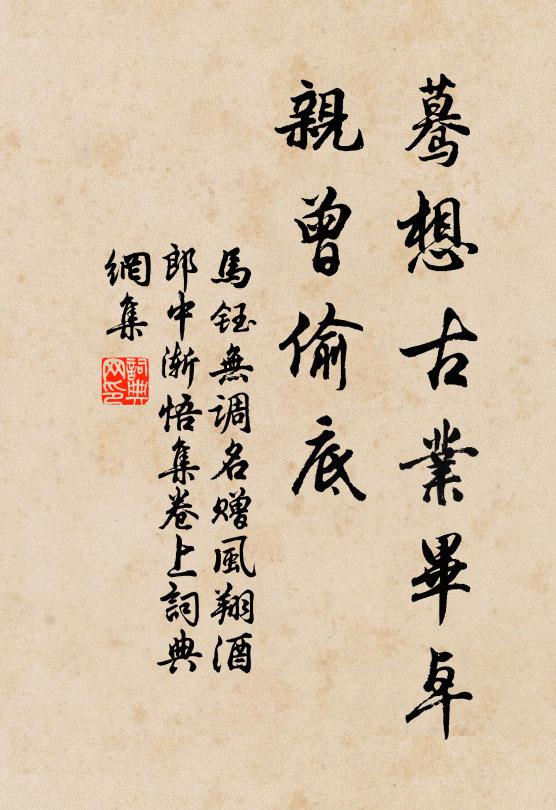 蓦想古業畢卓
親曾偷底
馬鈺無调名赠風翔酒
郎中渐悟集卷上詞典
網集
詞典网印